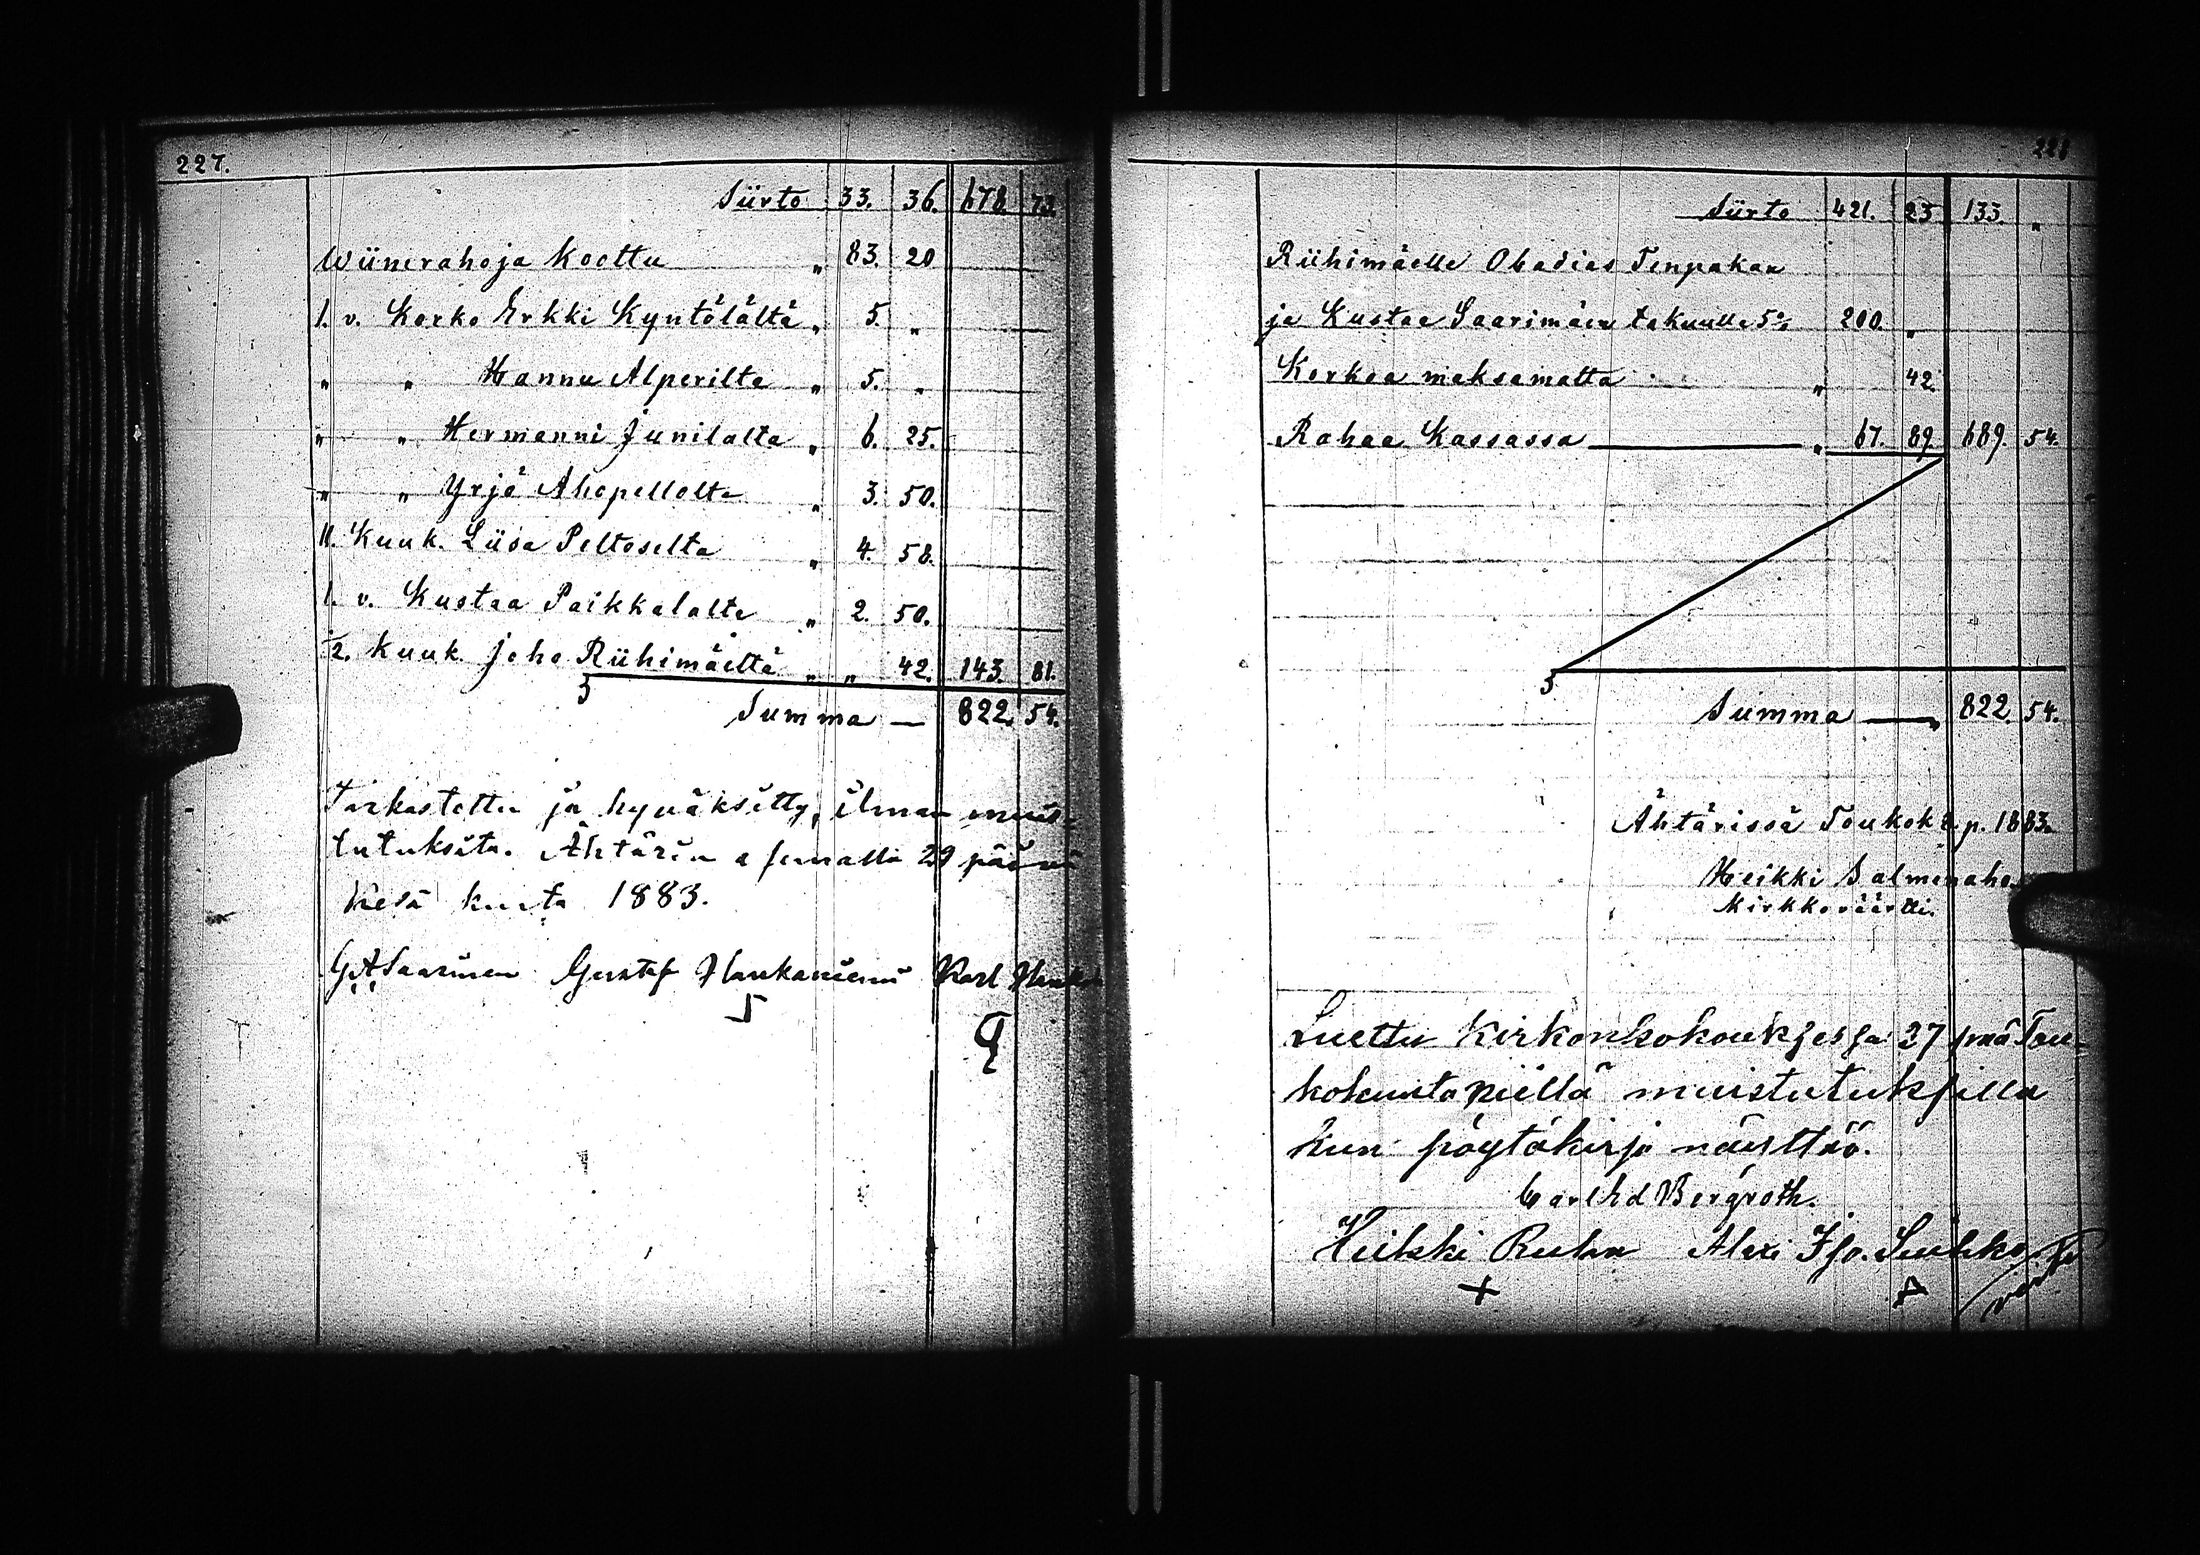 227.
Siirto 33. 36. 678. 73.
Wiinirahoja Koottu „ 83. 20
1. v. Korko Erkki Kyntölältä „ 5. „
„ „ Hannu Alperilta „ 5. „
„ „ Hermanni Junilalta „ 6. 25.
„ „ Yrjö Ahopellolta „ 3. 50.
11. Kuuk. Liisa Peltoselta „ 4. 58.
1. v. Kustaa Paikkalalta „ 2. 50.
1/2. Kuuk. Joho Riihimäeltä „ „ 42. 143. 81.
Summa — 822. 54.
Tarkastettu ja hyväksitty, ilman muis-
tutuksita. Ähtärin 29 päivä
Kesä kuuta 1883.
GASaarinen Gustaf Haukaniemi Karl
228
Siirto 421. 23 133. „
Riihimäelle Obadias Tenpakan
ja Kustaa Saarimäen takuulle 5% 200. „
Korkoa maksamatta „ 42.
Rahaa Kassassa „ 67. 89 689. 54.
Summa — 822. 54.
Ähtärissä Toukok p. 1883.
Heikki Salmenaho
Kirkkoväärtti.
Luettu Kirkonkokouksessa 27 pnä Tou-
kokuuta niillä muistutuksilla
kun pöytäkirja näyttää.
Carl Bergroth.
Heikki Alexi